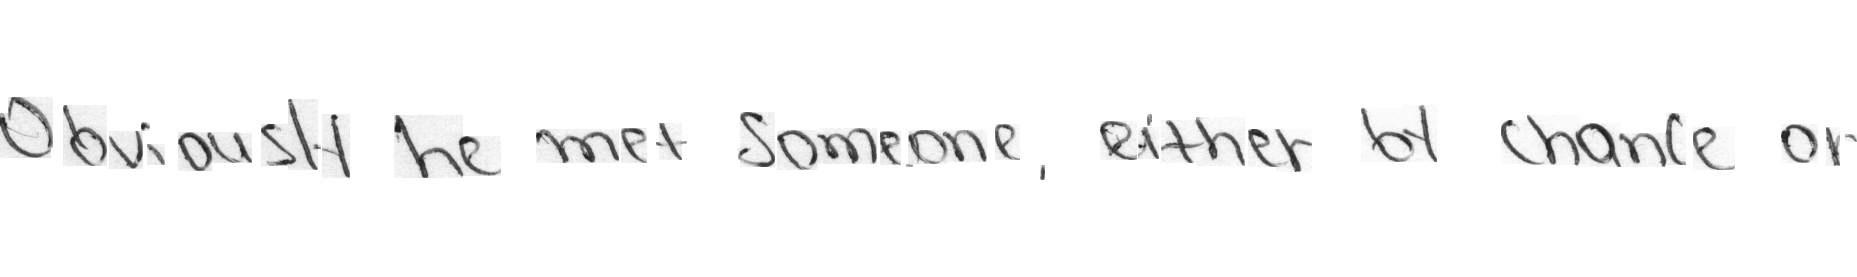 Obviously he met someone, either by chance or